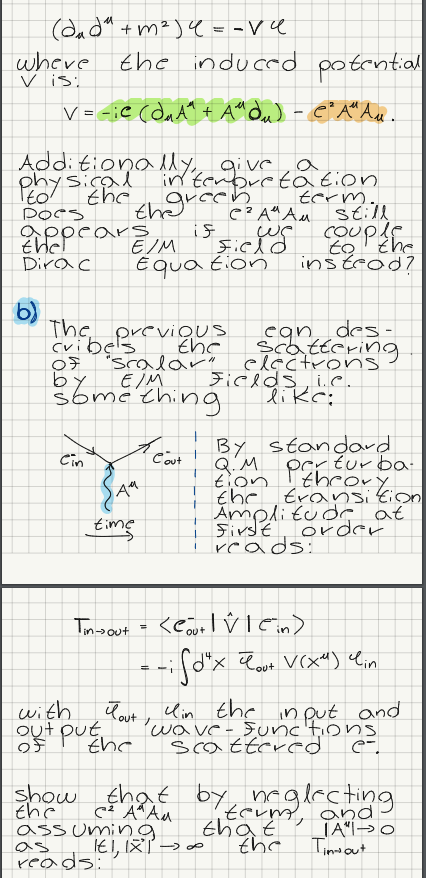 (∂μ∂^μ + m²)φ = -Vφ
where the induced potential
V is:
V = -ie(∂μA^μ + A^μ∂μ) - e²A^μAμ.
Additionally, give a
physical interpretation
to the green term.
Does the e²A^μAμ still
appears if we couple
the E/M field to the
Dirac Equation instead?
b)
The previous eqn des-
cribes the scattering
of "scalar" electrons
by E/M fields, i.e.
something like:
e⁻in
e⁻out
A^μ
time
By standard
QM perturba-
tion theory
the transition
Amplitude at
first order
reads:
T in→out = <e⁻out| V̂ |e⁻in>
= -i∫d⁴x φ̄out V(x^μ) φin
with φ̄out, φin the input and
output wave-functions
of the scattered e⁻.
show that by neglecting
the e²A^μAμ term, and
assuming that |A^μ|→0
as |t|,|x⃗|→∞ the T in→out
reads: